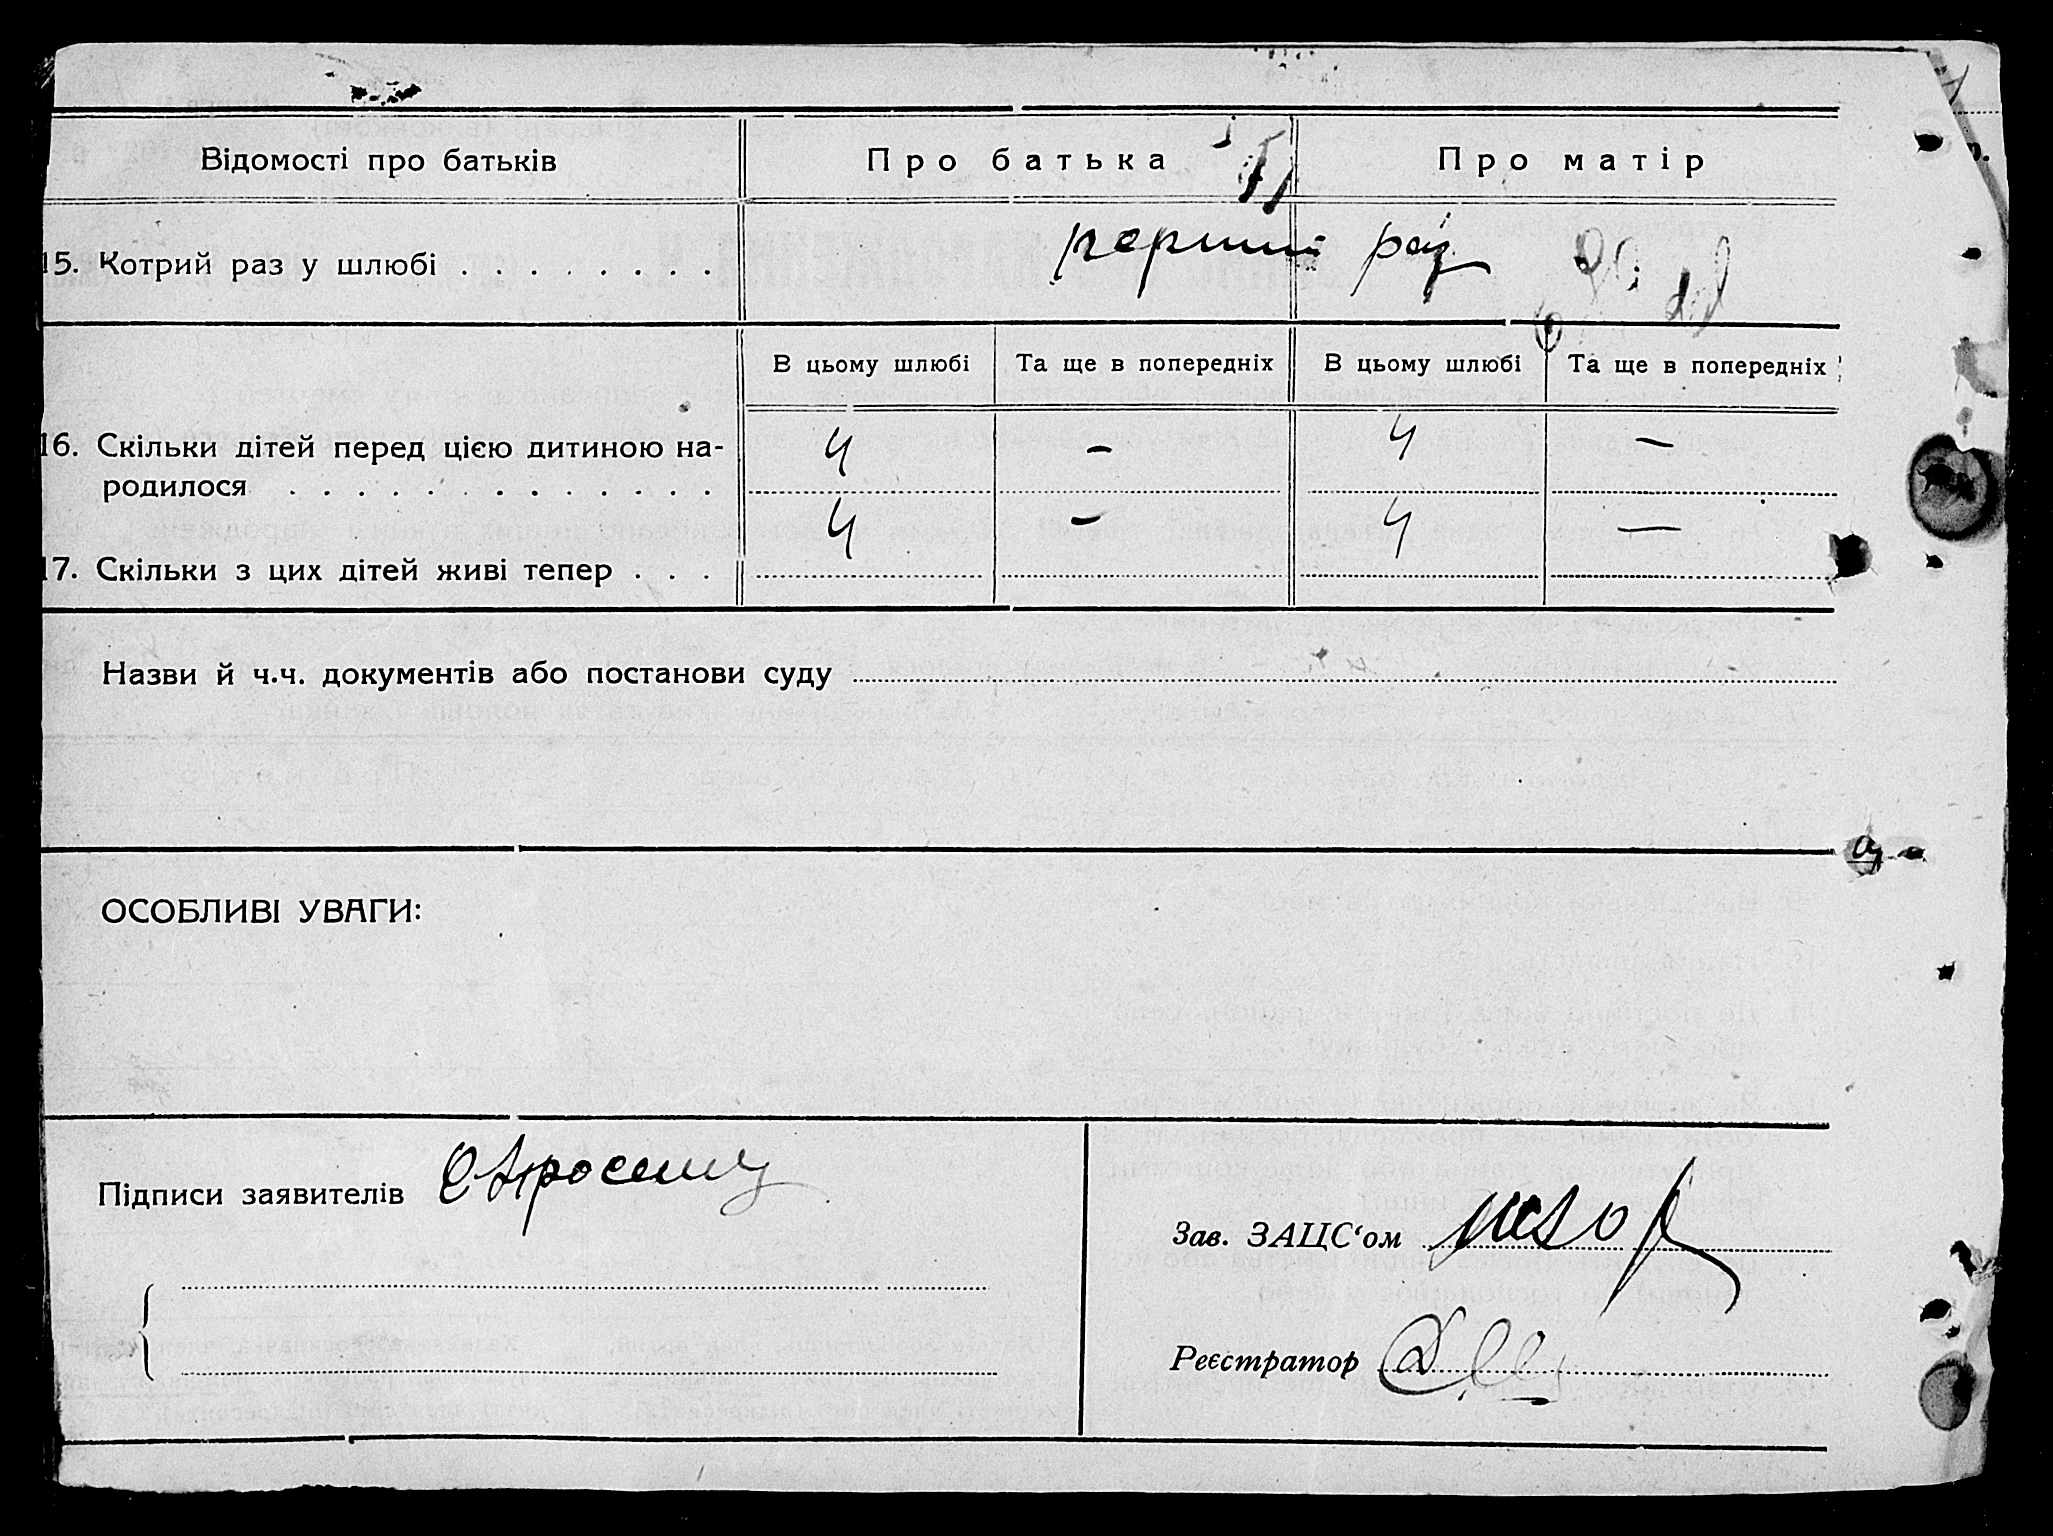 Відомості про батьків Про батька Про матір
15. Котрий раз у шлюбі . . . . . . . . перший раз
В цьому шлюбі Та ще в попередніх В цьому шлюбі Та ще в попередніх
16. Скільки дітей перед цією дитиною на- 4 – 4 –
родилося . . . . . . . . . . . . .
17. Скільки з цих дітей живі тепер . . . 4 – 4 –
Назви й ч.ч. документів або постанови суду
ОСОБЛИВІ УВАГИ:
Підписи заявителів
Зав. ЗАЦС‘ом
Реєстратор